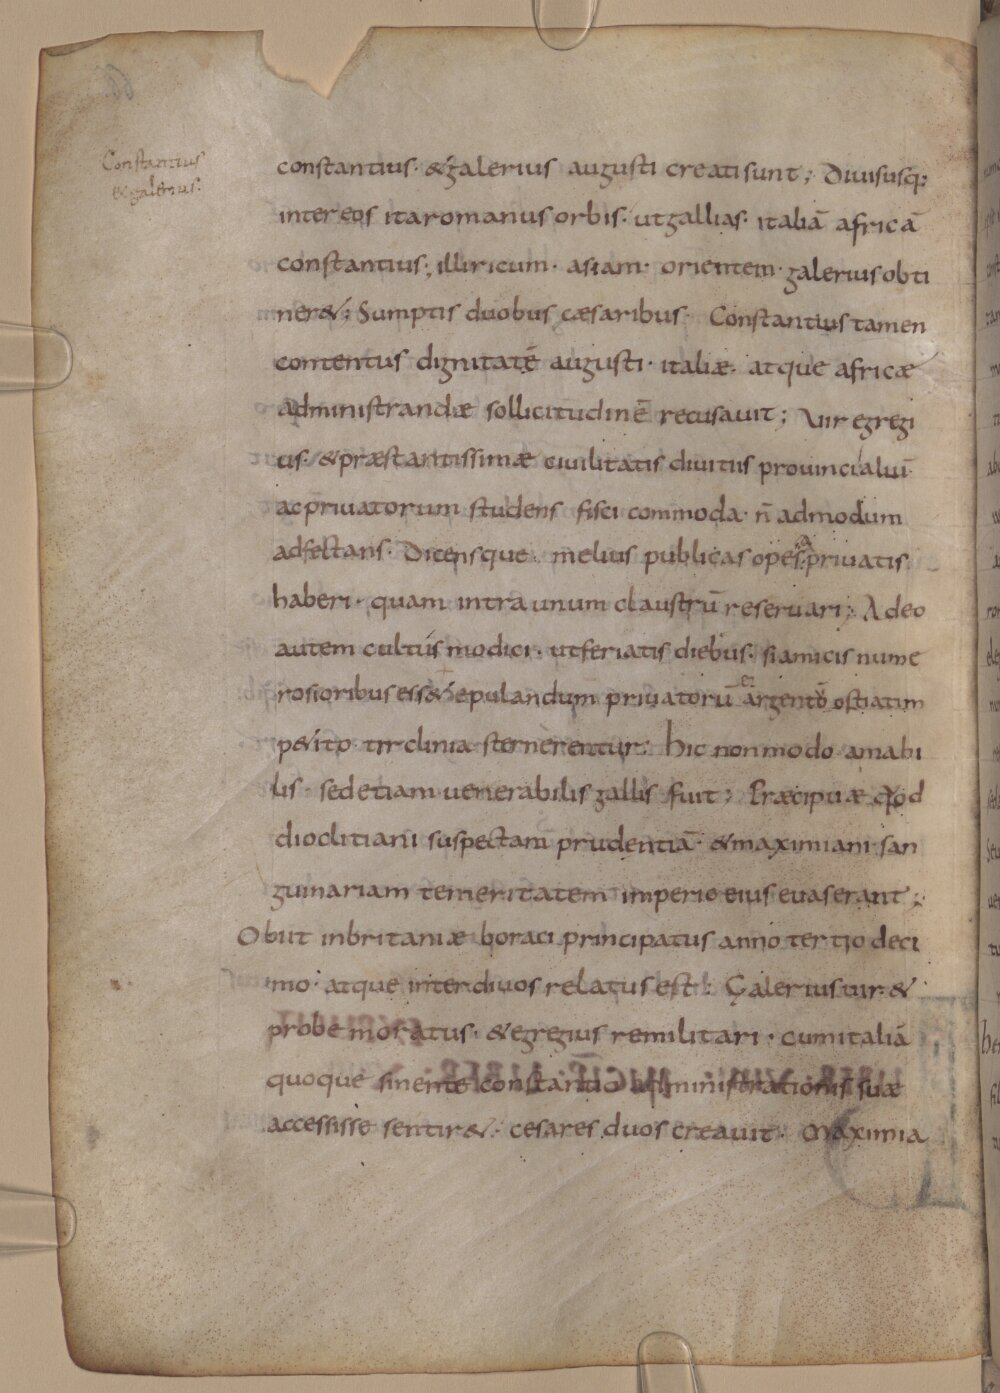 Constantius
& galerius.
constantius· & galerius augusti creati sunt; Diuisusq;
inter eos ita romanus orbis· ut gallias· italiā africā
constantius; illiricum· asiam· orientem· galerius obti
ner&; Sumptis duobus cæsaribus· Constantius tamen
contentus dignitatē augusti· italiæ· atque africæ
administrandæ sollicitudinē recusauit; Vir egregi
us· & præstantissimæ ciuilitatis diuitiis prouincialiū
ac priuatorum studens fisci commoda· n̄ admodum
adfectans· Dicensque· melius publicas opes a priuatis
haberi· quam intra unum claustrū reseruari; Adeo
autem cultus modici· ut feriatis diebus· si amicis nume
rosioribus ess& epulandum priuatorū ei argento ostiatim
p&ito triclinia sternerentur· hic non modo amabi
lis· sed etiam uenerabilis gallis fuit; Præcipuæ quod
dioclitiani suspectam prudentiā· & maximiani san
guinariam temeritatem imperio eius euaserant;
Obiit in britaniæ boraci principatus anno tertio deci
mo· atque inter diuos relatus est; Galerius uir &
probe moratus· & egregius re militari· cum italiā
quoque sinente constantio administrationis suæ
accessisse sentir&· cesares duos creauit· Maximia